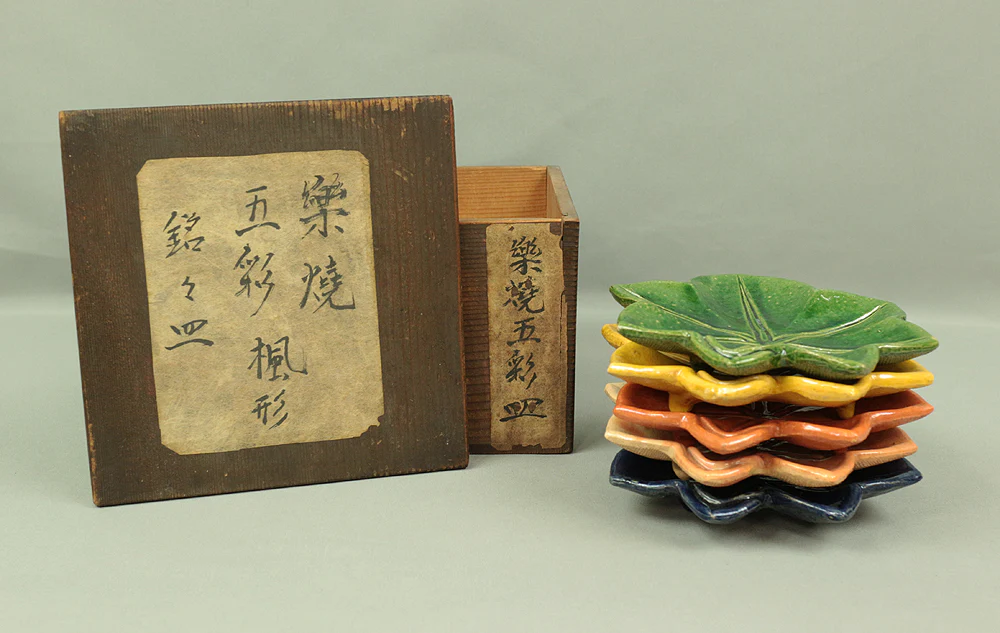 樂燒
五彩楓形
銘々皿
樂燒五彩皿